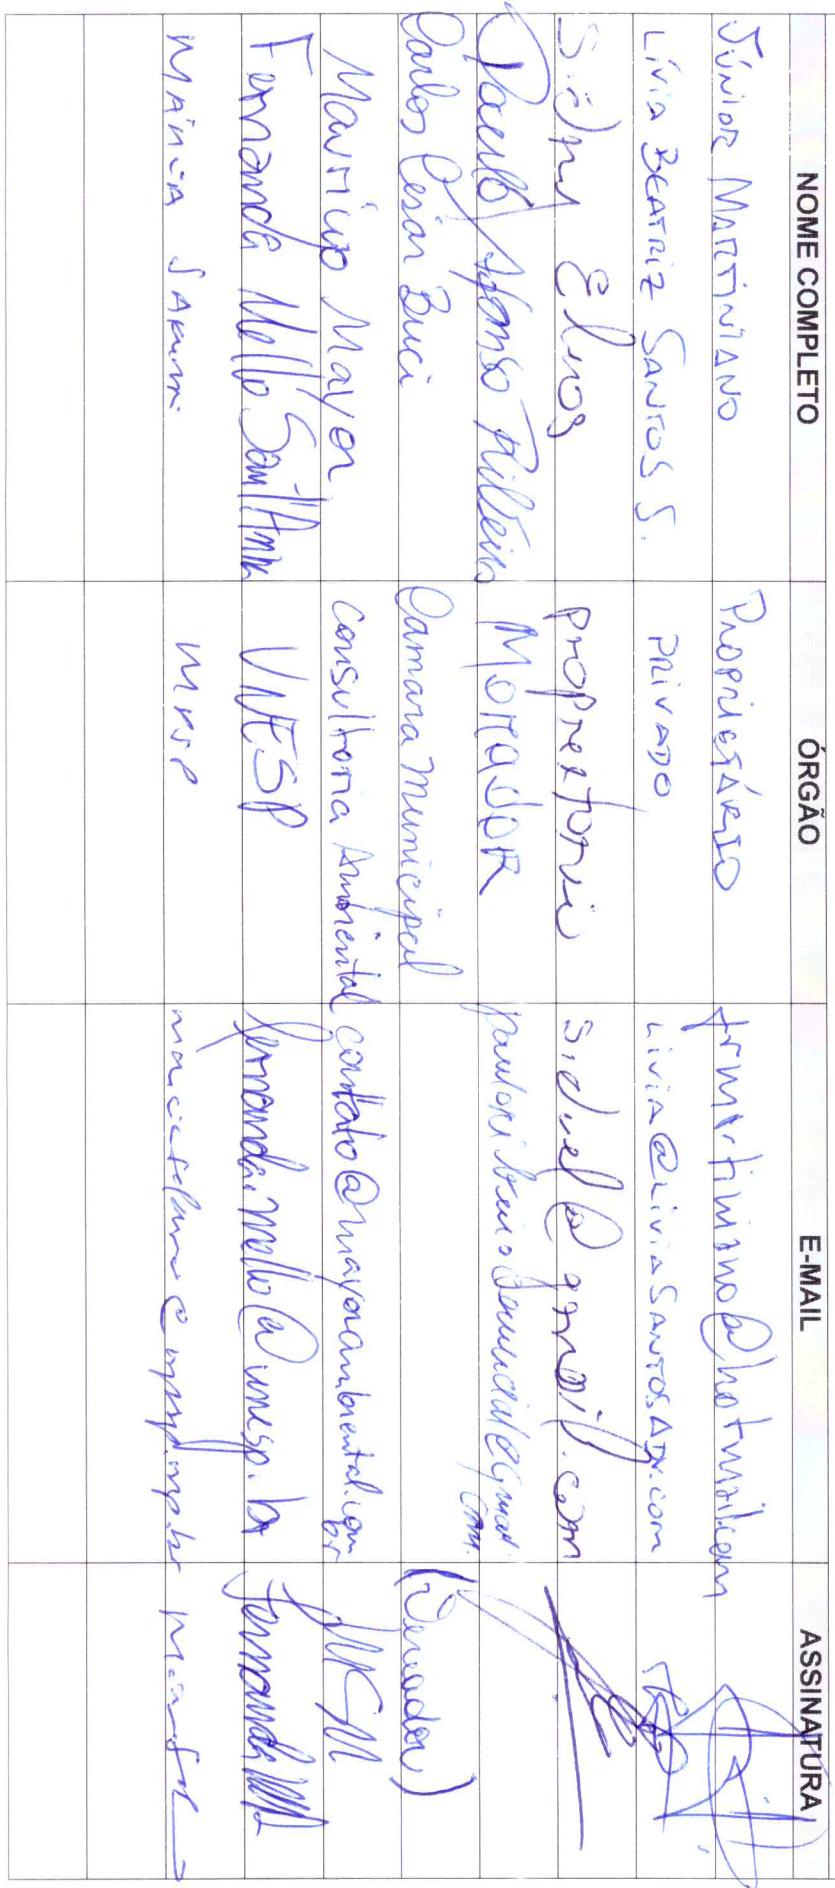 NOME COMPLETO ÓRGÃO E-MAIL ASSINATURA
JÚNIOR MARTINIANO PROPRIETÁRIO jrmartiniano@hotmail.com
LÍVIA BEATRIZ SANTOS S. PRIVADO LIVIA@LIVIASANTOSADV.COM
Sidney proprietario sidnel@gmail.com
Paulo Afonso Ribeiro MORADOR
Carlos Cesar Buci Camara Municipal (Vereador)
Mauricio Mayer Consultoria Ambiental contato@mayerambiental.com
br
Fernanda Mello Sant'Anna UNESP fernanda.mello@unesp.br Fernanda
MPSP